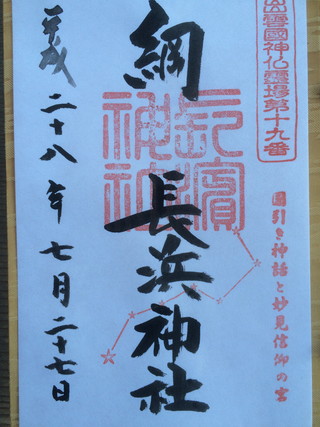 出雲國神仏霊場第十九番
國引き神話と妙見信仰の宮
綱
長浜神社
長濱神社
平成二十八年七月二十七日